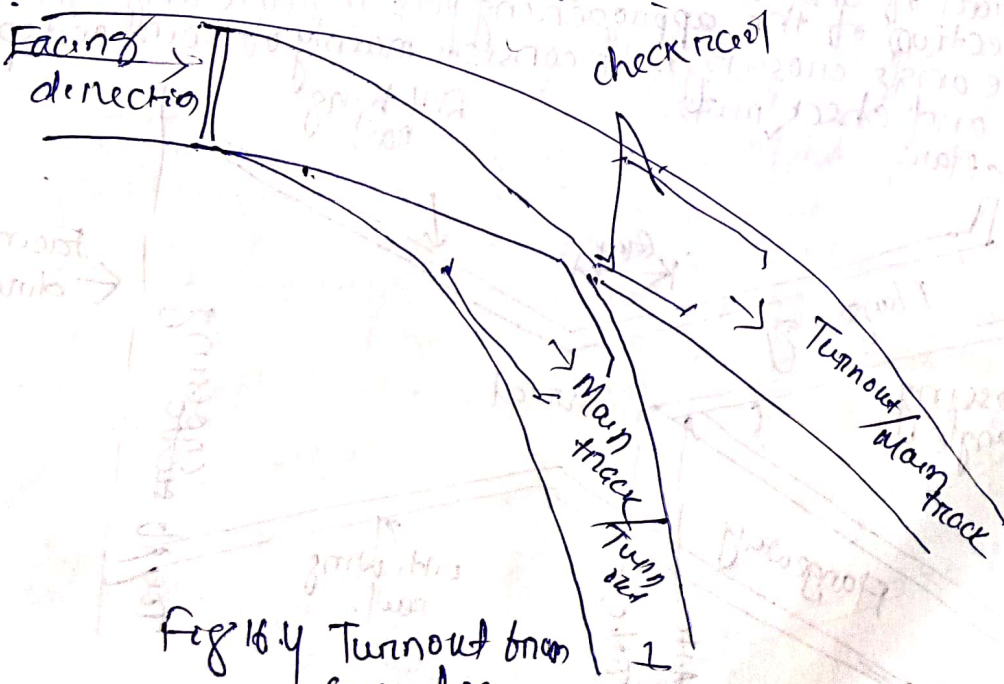 Facing
direction
check rail
Turnout/Main track
Main track/Turn out
Fig 16.4 Turnout
1